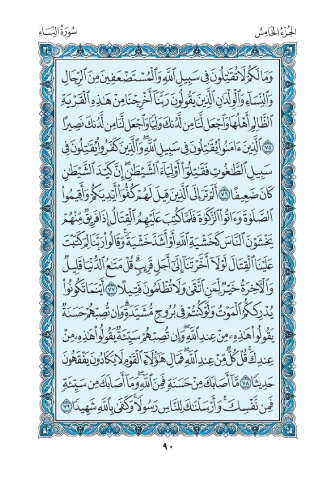 الجزء الخامس
سورة النساء
وَمَا لَكُمْ لَا تُقَٰتِلُونَ فِى سَبِيلِ ٱللَّهِ وَٱلْمُسْتَضْعَفِينَ مِنَ ٱلرِّجَالِ
وَٱلنِّسَآءِ وَٱلْوِلْدَٰنِ ٱلَّذِينَ يَقُولُونَ رَبَّنَآ أَخْرِجْنَا مِنْ هَٰذِهِ ٱلْقَرْيَةِ
ٱلظَّالِمِ أَهْلُهَا وَٱجْعَل لَّنَا مِن لَّدُنكَ وَلِيًّا وَٱجْعَل لَّنَا مِن لَّدُنكَ نَصِيرًا
٧٥ ٱلَّذِينَ ءَامَنُوا۟ يُقَٰتِلُونَ فِى سَبِيلِ ٱللَّهِ وَٱلَّذِينَ كَفَرُوا۟ يُقَٰتِلُونَ فِى
سَبِيلِ ٱلطَّٰغُوتِ فَقَٰتِلُوٓا۟ أَوْلِيَآءَ ٱلشَّيْطَٰنِ إِنَّ كَيْدَ ٱلشَّيْطَٰنِ
كَانَ ضَعِيفًا ٧٦ أَلَمْ تَرَ إِلَى ٱلَّذِينَ قِيلَ لَهُمْ كُفُّوٓا۟ أَيْدِيَكُمْ وَأَقِيمُوا۟
ٱلصَّلَوٰةَ وَءَاتُوا۟ ٱلزَّكَوٰةَ فَلَمَّا كُتِبَ عَلَيْهِمُ ٱلْقِتَالُ إِذَا فَرِيقٌ مِّنْهُمْ
يَخْشَوْنَ ٱلنَّاسَ كَخَشْيَةِ ٱللَّهِ أَوْ أَشَدَّ خَشْيَةً وَقَالُوا۟ رَبَّنَا لِمَ كَتَبْتَ
عَلَيْنَا ٱلْقِتَالَ لَوْلَآ أَخَّرْتَنَآ إِلَىٰٓ أَجَلٍ قَرِيبٍ قُلْ مَتَٰعُ ٱلدُّنْيَا قَلِيلٌ
وَٱلْءَاخِرَةُ خَيْرٌ لِّمَنِ ٱتَّقَىٰ وَلَا تُظْلَمُونَ فَتِيلًا ٧٧ أَيْنَمَا تَكُونُوا۟
يُدْرِككُّمُ ٱلْمَوْتُ وَلَوْ كُنتُمْ فِى بُرُوجٍ مُّشَيَّدَةٍ وَإِن تُصِبْهُمْ حَسَنَةٌ
يَقُولُوا۟ هَٰذِهِۦ مِنْ عِندِ ٱللَّهِ وَإِن تُصِبْهُمْ سَيِّئَةٌ يَقُولُوا۟ هَٰذِهِۦ مِنْ
عِندِكَ قُلْ كُلٌّ مِّنْ عِندِ ٱللَّهِ فَمَالِ هَٰٓؤُلَآءِ ٱلْقَوْمِ لَا يَكَادُونَ يَفْقَهُونَ
حَدِيثًا ٧٨ مَّآ أَصَابَكَ مِنْ حَسَنَةٍ فَمِنَ ٱللَّهِ وَمَآ أَصَابَكَ مِن سَيِّئَةٍ
فَمِن نَّفْسِكَ وَأَرْسَلْنَٰكَ لِلنَّاسِ رَسُولًا وَكَفَىٰ بِٱللَّهِ شَهِيدًا ٧٩
٩٠